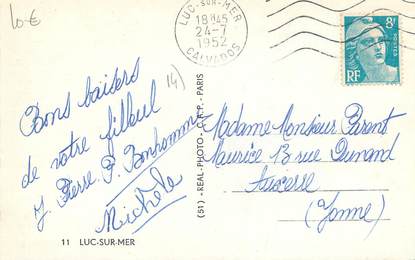 10 €
LUC-SUR-MER
18H45
24-7
1952
CALVADOS
8F
POSTES
RF
14)
Bons baisers
de votre filleul
J. Pierre P. Bonhomme
Michèle
(51) - REAL-PHOTO - C.A.P. - PARIS
Madame Monsieur Parent
Maurice 13 rue Dunand
Auxerre
(Yonne)
11 LUC-SUR-MER